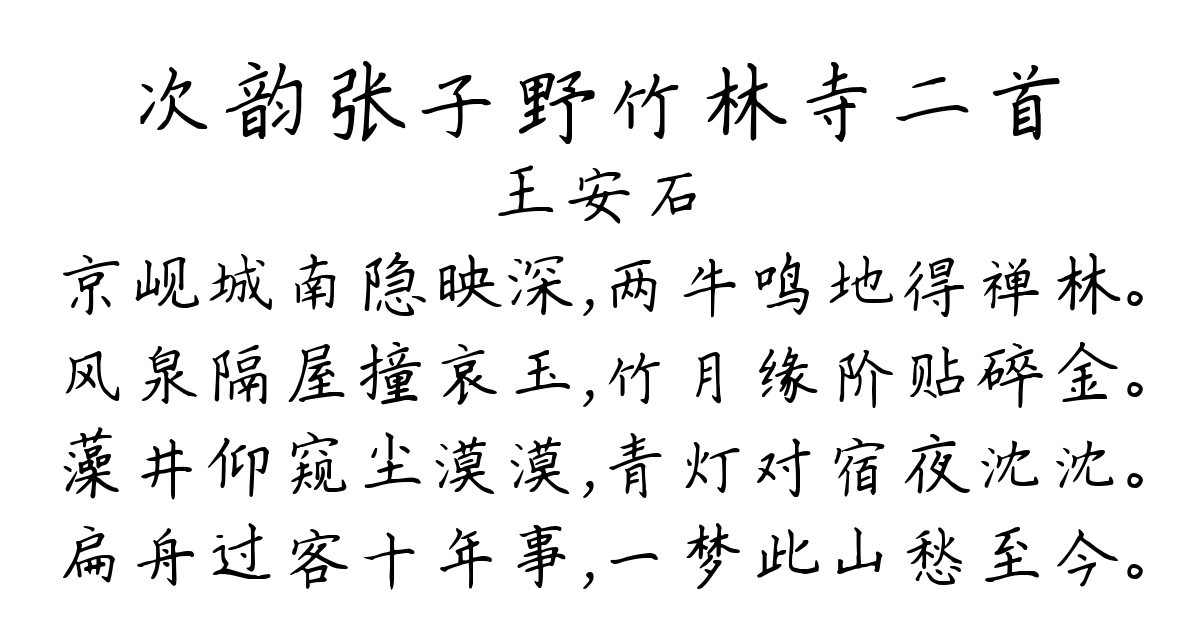 次韵张子野竹林寺二首
王安石
京岘城南隐映深,两牛鸣地得禅林。
风泉隔屋撞哀玉,竹月缘阶贴碎金。
藻井仰窥尘漠漠,青灯对宿夜沈沈。
扁舟过客十年事,一梦此山愁至今。